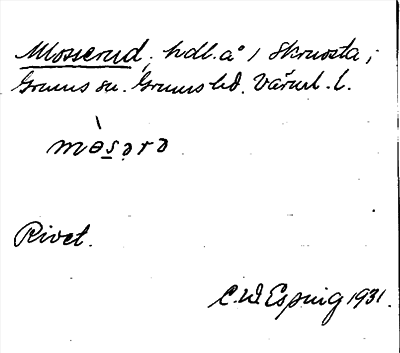 Mosserud, hdl. å 1 Skruvsta,
Grums sn. Grums hd. Värml. l.
mòsərə
Rivet.
C. W. Esping 1931.